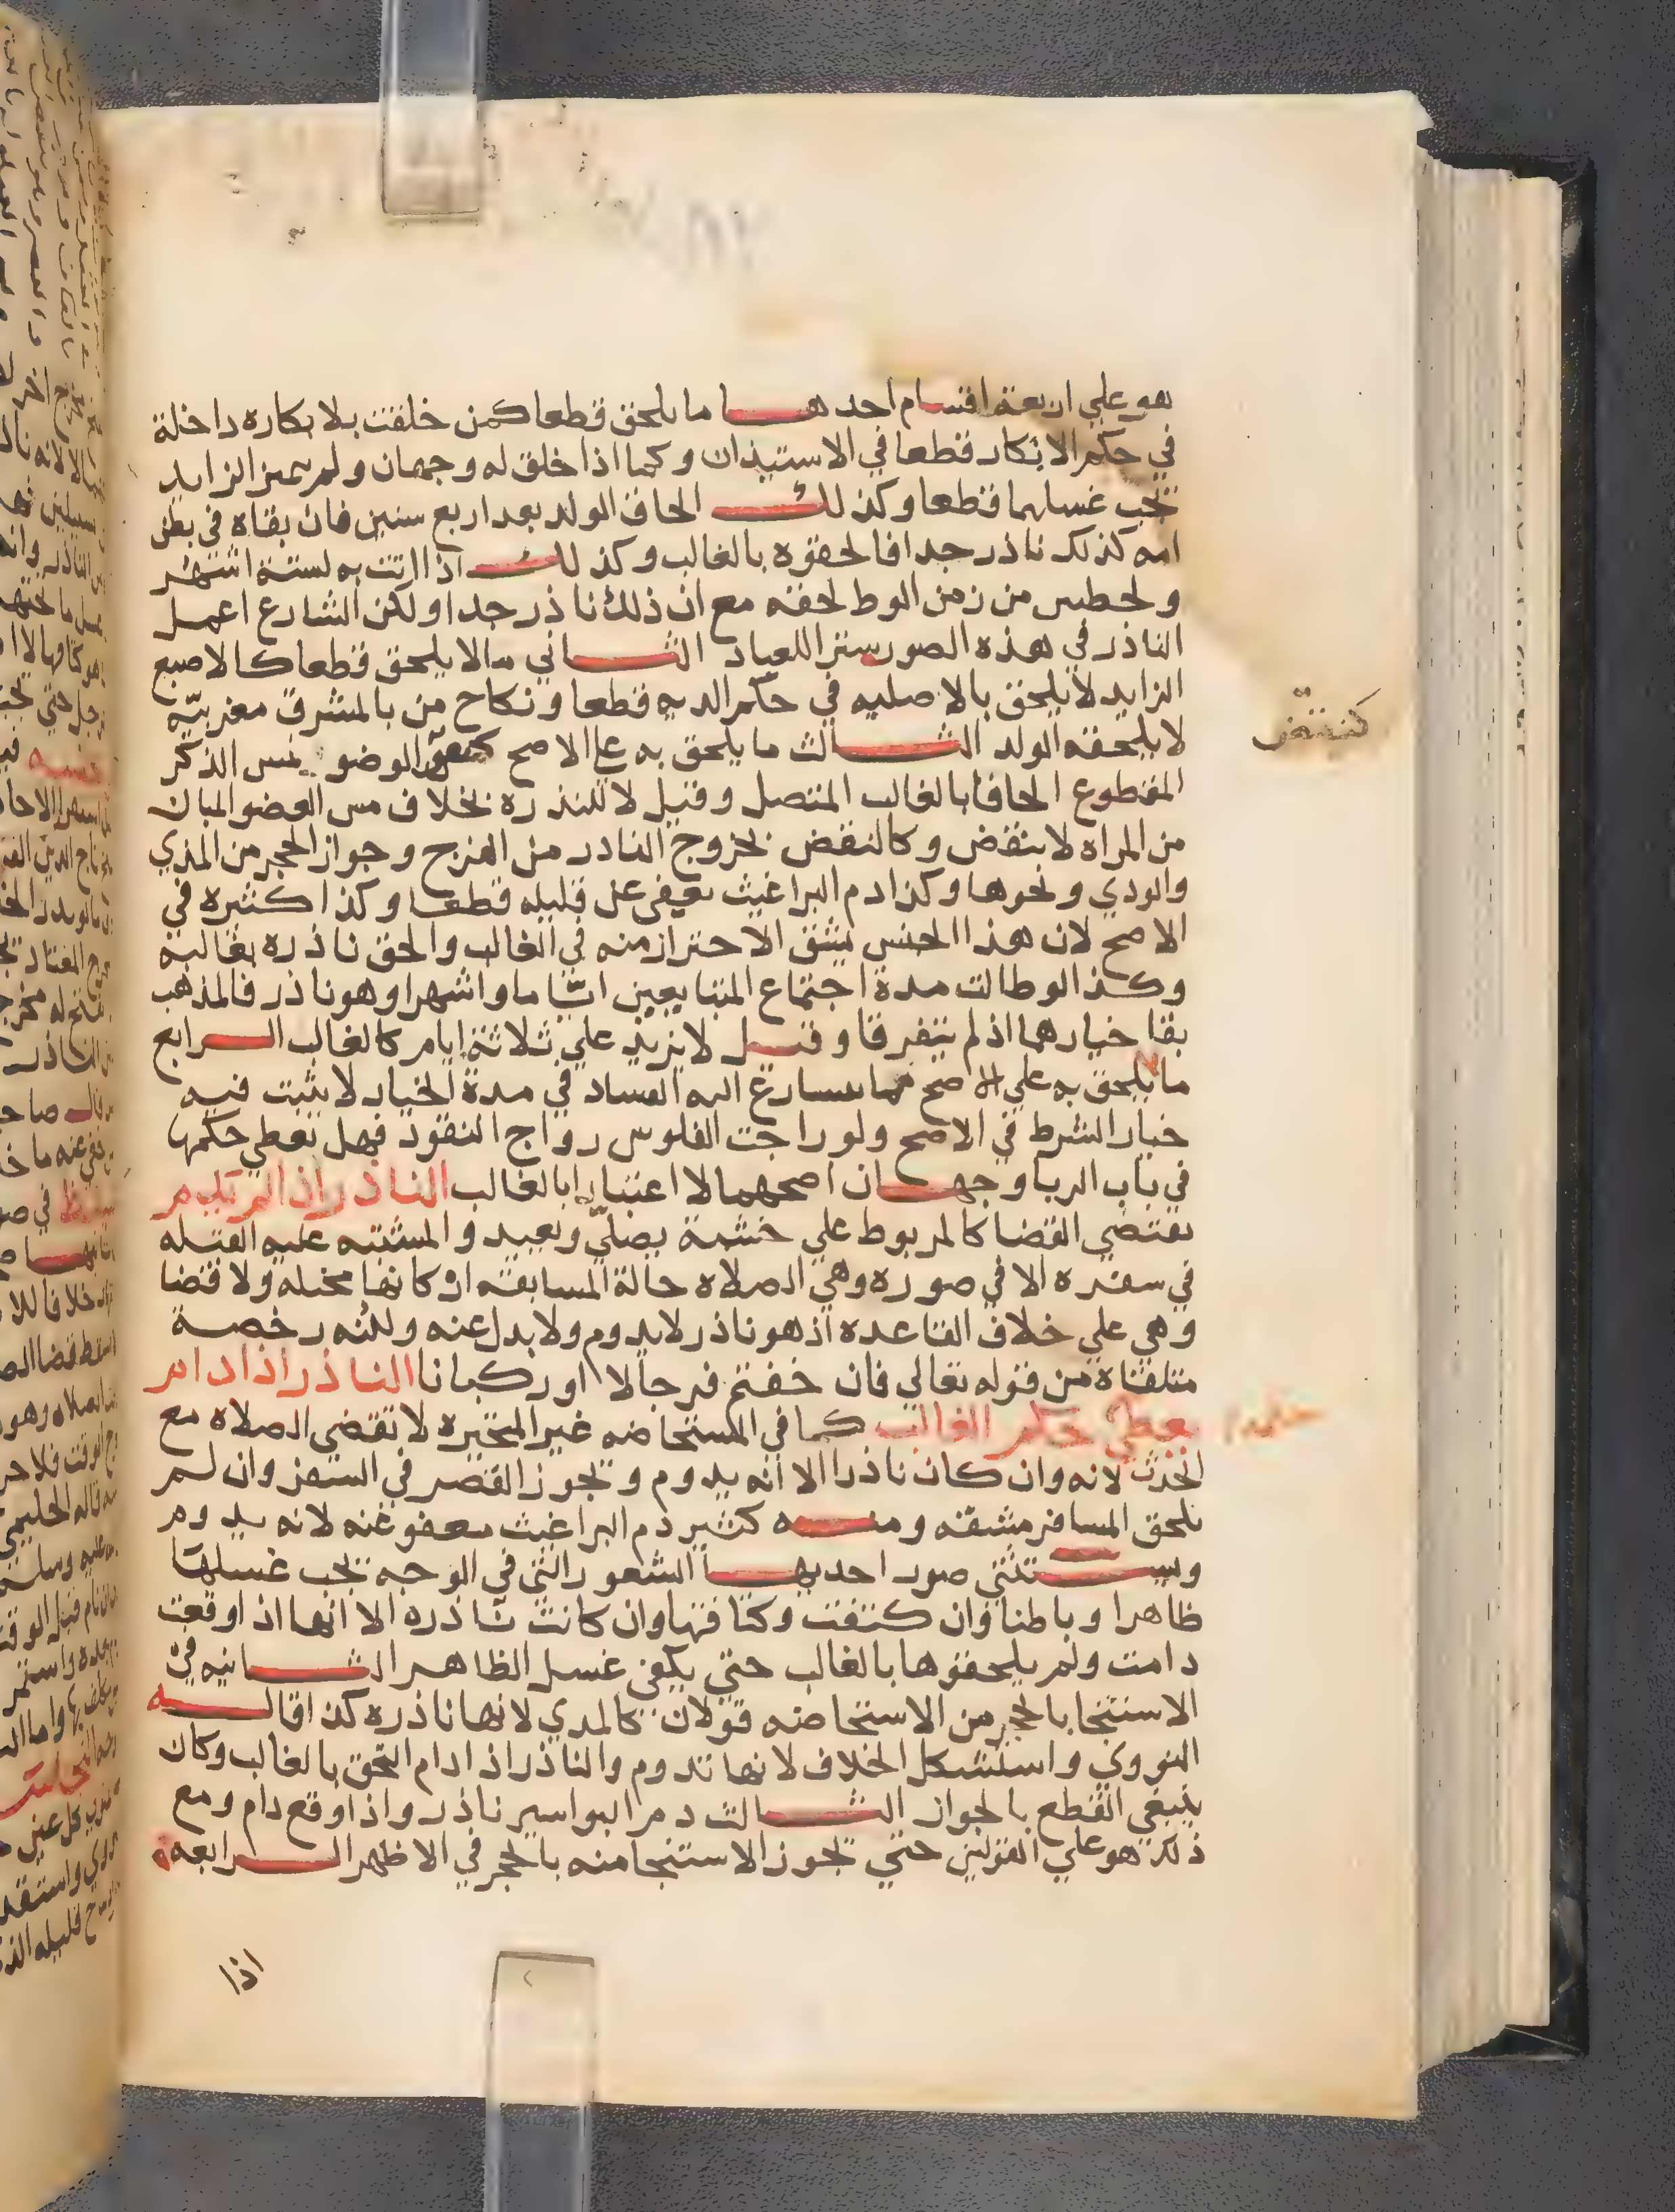 هو علي اربعة اقسام احدها ما يلحق قطعا كمن خلقت بلا بكاره داخلة
في حكم الابكار قطعا في الاستيذان وكما اذا خلق له وجهان ولم يتميز الزايد
يجب غسلهما قطعا وكذلك الحاق الولد بعد اربع سنين فان بقاه في بطن
امه كذلك نادر جدا فالحقوه بالغالب وكذلك اذا اتت به لستة اشهر
ولحظتين من زمن الوط لحقه مع ان ذلك نادر جدا ولكن الشارع اعمل
النادر في هذه الصور ستراللعباد الثاني مالا يلحق قطعا كالاصبع
الزايد لا يلحق بالاصليه في حكم الديه قطعا ونكاح من بالمشرق مغربيّه
لا يلحقه الولد الثالث ما يلحق به علي الاصح كنقض الوضو بمس الذكر
كنقض
المقطوع الحاقا بالغالب المتصل وقيل لا للندره بخلاف مس العضو المبان
من المراه لا ينقض وكالنقض بخروج النادر من الفرج وجواز الحجر من المذي
والودي ونحوها وكذا دم البراغيث يعفى عن قليله قطعا وكذا كثيره في
الاصح لان هذا الجنس يشق الاحتراز منه في الغالب والحق نادره بغالبه
وكذا لوطالت مدة اجتماع المتبايعين اياما واشهرا وهو نادر فالمذهب
بقا خيارهما اذ لم يتفرقا وقيل لا يزيد علي ثلاثة ايام كالغالب الرابع
ما لا يلحق به علي الاصح فما يتسارع اليه الفساد في مدة الخيار لا يثبت فيه
خيار الشرط في الاصح ولو راجت الفلوس رواج النقود فهل تعطي حكمها
في باب الربا وجهان اصحهما لا اعتبارا بالغالب النادر اذا لم يدم
يقتضي القضا كالمربوط علي خشبة يصلّي ويعيد والمشتبه عليه القبله
في سفره الا في صوره وهي الصلاه حالة المسابقه اركانها مختله ولا قضا
وهي علي خلاف القاعده اذ هو نادر لا يدوم ولا بدل عنه ولكنه رخصة
متلقاة من قوله تعالي فان خفتم فرجالا او ركبانا النادر اذا دام
يعطي حكم الغالب كما في المستحاضه غير المتحيره لا تقضي الصلاه مع
الحدث لانه وان كان نادرا الا انه يدوم ويجوز القصر في السفر وان لم
يلحق المسافر مشقه ومنه كثير دم البراغيث معفو عنه لانه يدوم
ويستثني صور احديها الشعور التي في الوجه يجب غسلها
ظاهرا وباطنا وان كثفت وكثافتها وان كانت نادره الا انها اذا وقعت
دامت ولم يلحقوها بالغالب حتي يكفي غسل الظاهر الثانيه في
الاستنجا بالحجر من الاستحاضه قولان كالمدي لانها نادره كذا قاله
النووي واستشكل الخلاف لانها تدوم والنادر اذا دام التحق بالغالب وكان
ينبغي القطع بالجواز الثالث دم البواسير نادر واذا وقع دام ومع
ذلك هو علي القولين حتي يجوز الاستنجا منه بالحجر في الاظهر الرابعة
اذا